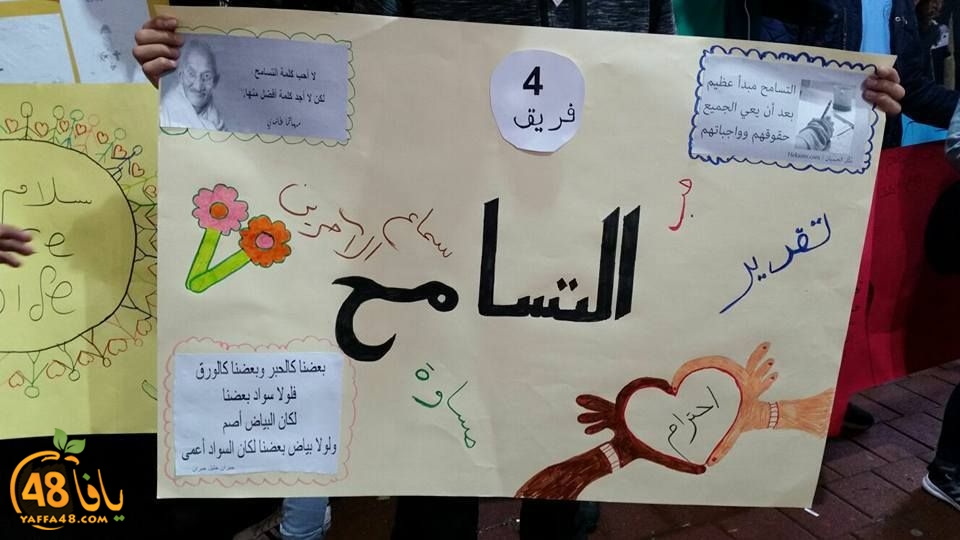 لا أحب كلمة التسامح
لكن لا أجد كلمة أفضل منها.
مهاتما غاندي
4
فريق
التسامح مبدأ عظيم
بعد أن يعي الجميع
حقوقهم وواجباتهم
حب
تقدير
سماع الآخرين
التسامح
مساواة
احترام
بعضنا كالحبر وبعضنا كالورق
فلولا سواد بعضنا
لكان البياض أصم
ولولا بياض بعضنا لكان السواد أعمى
جبران خليل جبران
سلام
يافا 48
YAFFA48.COM